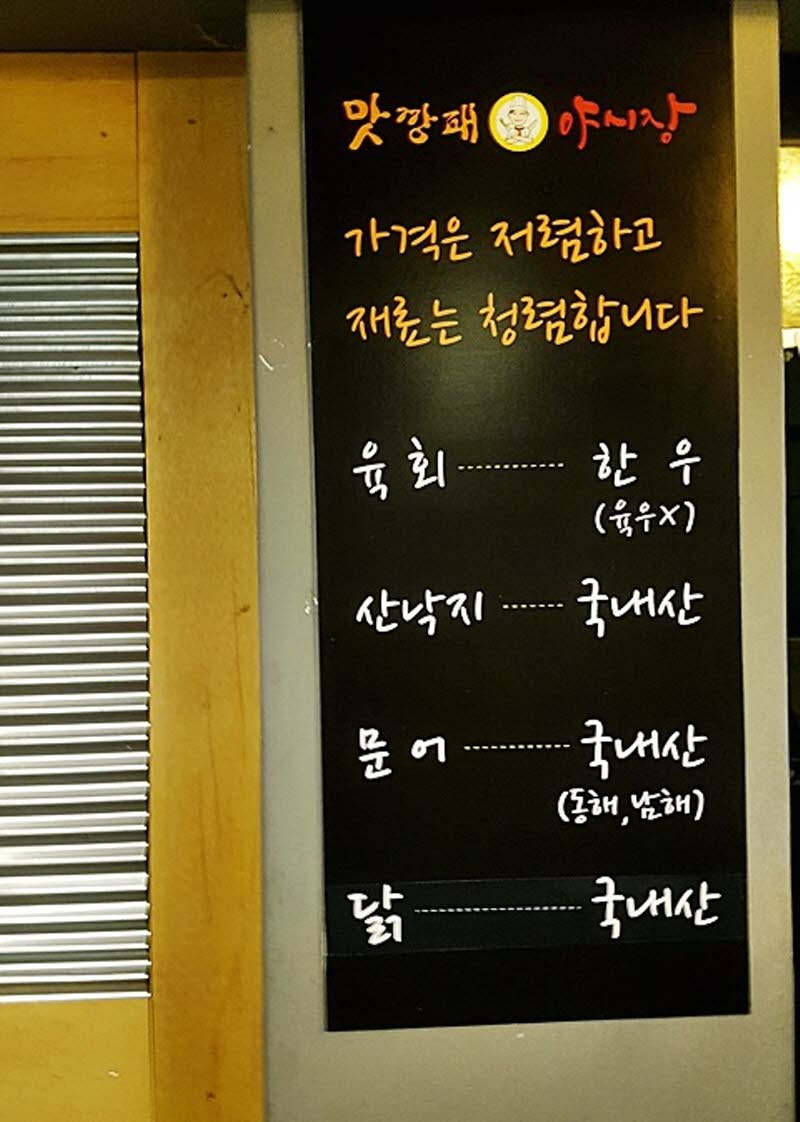 맛깡패 야시장
가격은 저렴하고
재료는 청렴합니다
육회 ----------- 한우
(육우X)
산낙지 ------ 국내산
문어 ----------- 국내산
(동해,남해)
닭 ----------------- 국내산